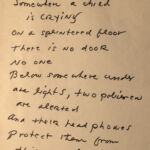 Somewhere a child
is CRYING
ON a splintered floor
There is no door
NO one
Below somewhere under
are lights, two policemen
are alerted
And their headphones
Protect them from